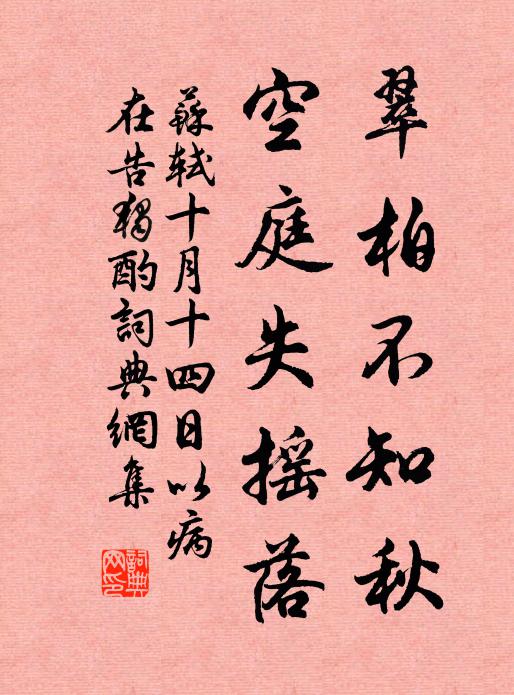 翠柏不知秋
空庭失摇落
蘇軾十月十四日以病
在告獨酌詞典網集
詞典
网印